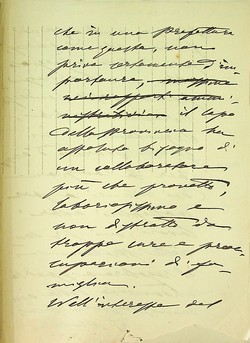 che in una Prefettura
come questa, non
priva certamente d'im-
portanza, massime
nei rapporti ammi-
nistrativi il capo
della Provincia ha
assoluto bisogno di
un collaboratore
più che provetto,
laboriosissimo e
non distratto da
troppe cure e preoc-
cupazioni di fa-
miglia.
Nell'interesse del